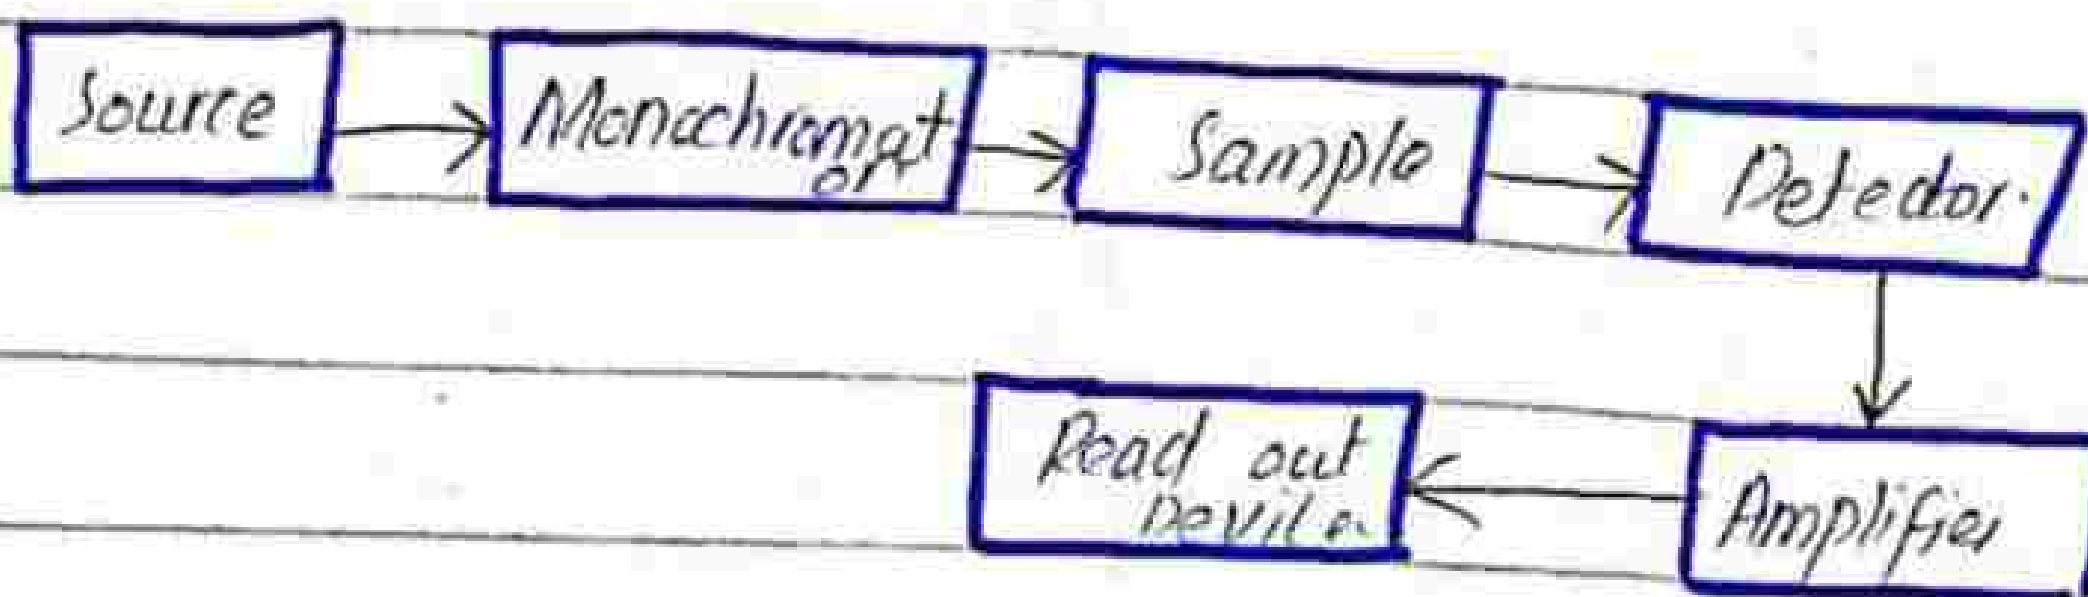 Source
Monochromat
or
Sample
Detector.
Read out
Device
Amplifier